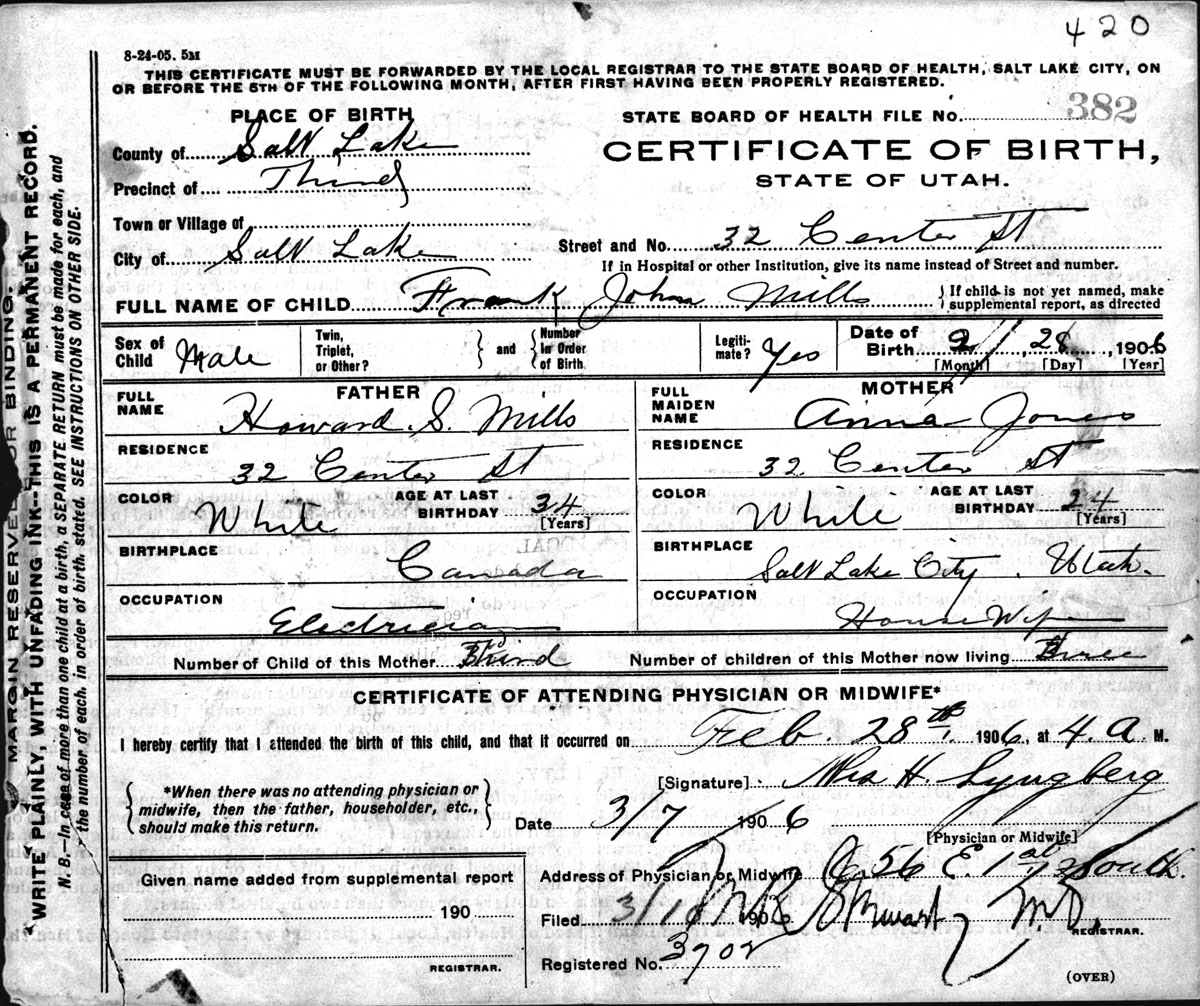 420
8-24-05. 5M
THIS CERTIFICATE MUST BE FORWARDED BY THE LOCAL REGISTRAR TO THE STATE BOARD OF HEALTH, SALT LAKE CITY, ON
OR BEFORE THE 5TH OF THE FOLLOWING MONTH, AFTER FIRST HAVING BEEN PROPERLY REGISTERED.
PLACE OF BIRTH
County of Salt Lake
Precinct of Third
Town or Village of
City of Salt Lake
STATE BOARD OF HEALTH FILE No. 382
CERTIFICATE OF BIRTH,
STATE OF UTAH.
Street and No. 32 Center St
If in Hospital or other Institution, give its name instead of Street and number.
FULL NAME OF CHILD Frank John Mills
If child is not yet named, make
supplemental report, as directed
Sex of Child Male
Twin, Triplet, or Other?
and
Number In Order of Birth
Legiti- mate? Yes
Date of Birth 2/ 28, 1906
[Month] [Day] [Year]
FATHER
FULL NAME Howard S. Mills
RESIDENCE
32 Center St
COLOR White
AGE AT LAST BIRTHDAY 34
[Years]
BIRTHPLACE
Canada
OCCUPATION
Electrician
MOTHER
FULL MAIDEN NAME Anna Jones
RESIDENCE
32 Center St
COLOR White
AGE AT LAST BIRTHDAY 24
[Years]
BIRTHPLACE
Salt Lake City. Utah.
OCCUPATION
House Wife
Number of Child of this Mother Third
Number of children of this Mother now living three
CERTIFICATE OF ATTENDING PHYSICIAN OR MIDWIFE*
I hereby certify that I attended the birth of this child, and that it occurred on Feb. 28th, 1906, at 4. A M.
*When there was no attending physician or
midwife, then the father, householder, etc.,
should make this return.
[Signature] Mrs H. Lyngberg
Date 3/7 1906
[Physician or Midwife]
Address of Physician or Midwife 56 E. 1st South.
Given name added from supplemental report
190
REGISTRAR.
Filed 3/10 1906 M.D.
REGISTRAR.
Registered No. 3702
(OVER)
MARGIN RESERVED FOR BINDING.
WRITE PLAINLY, WITH UNFADING INK--THIS IS A PERMANENT RECORD.
N. B.—In case of more than one child at a birth, a SEPARATE RETURN must be made for each, and
the number of each, in order of birth, stated. SEE INSTRUCTIONS ON OTHER SIDE.